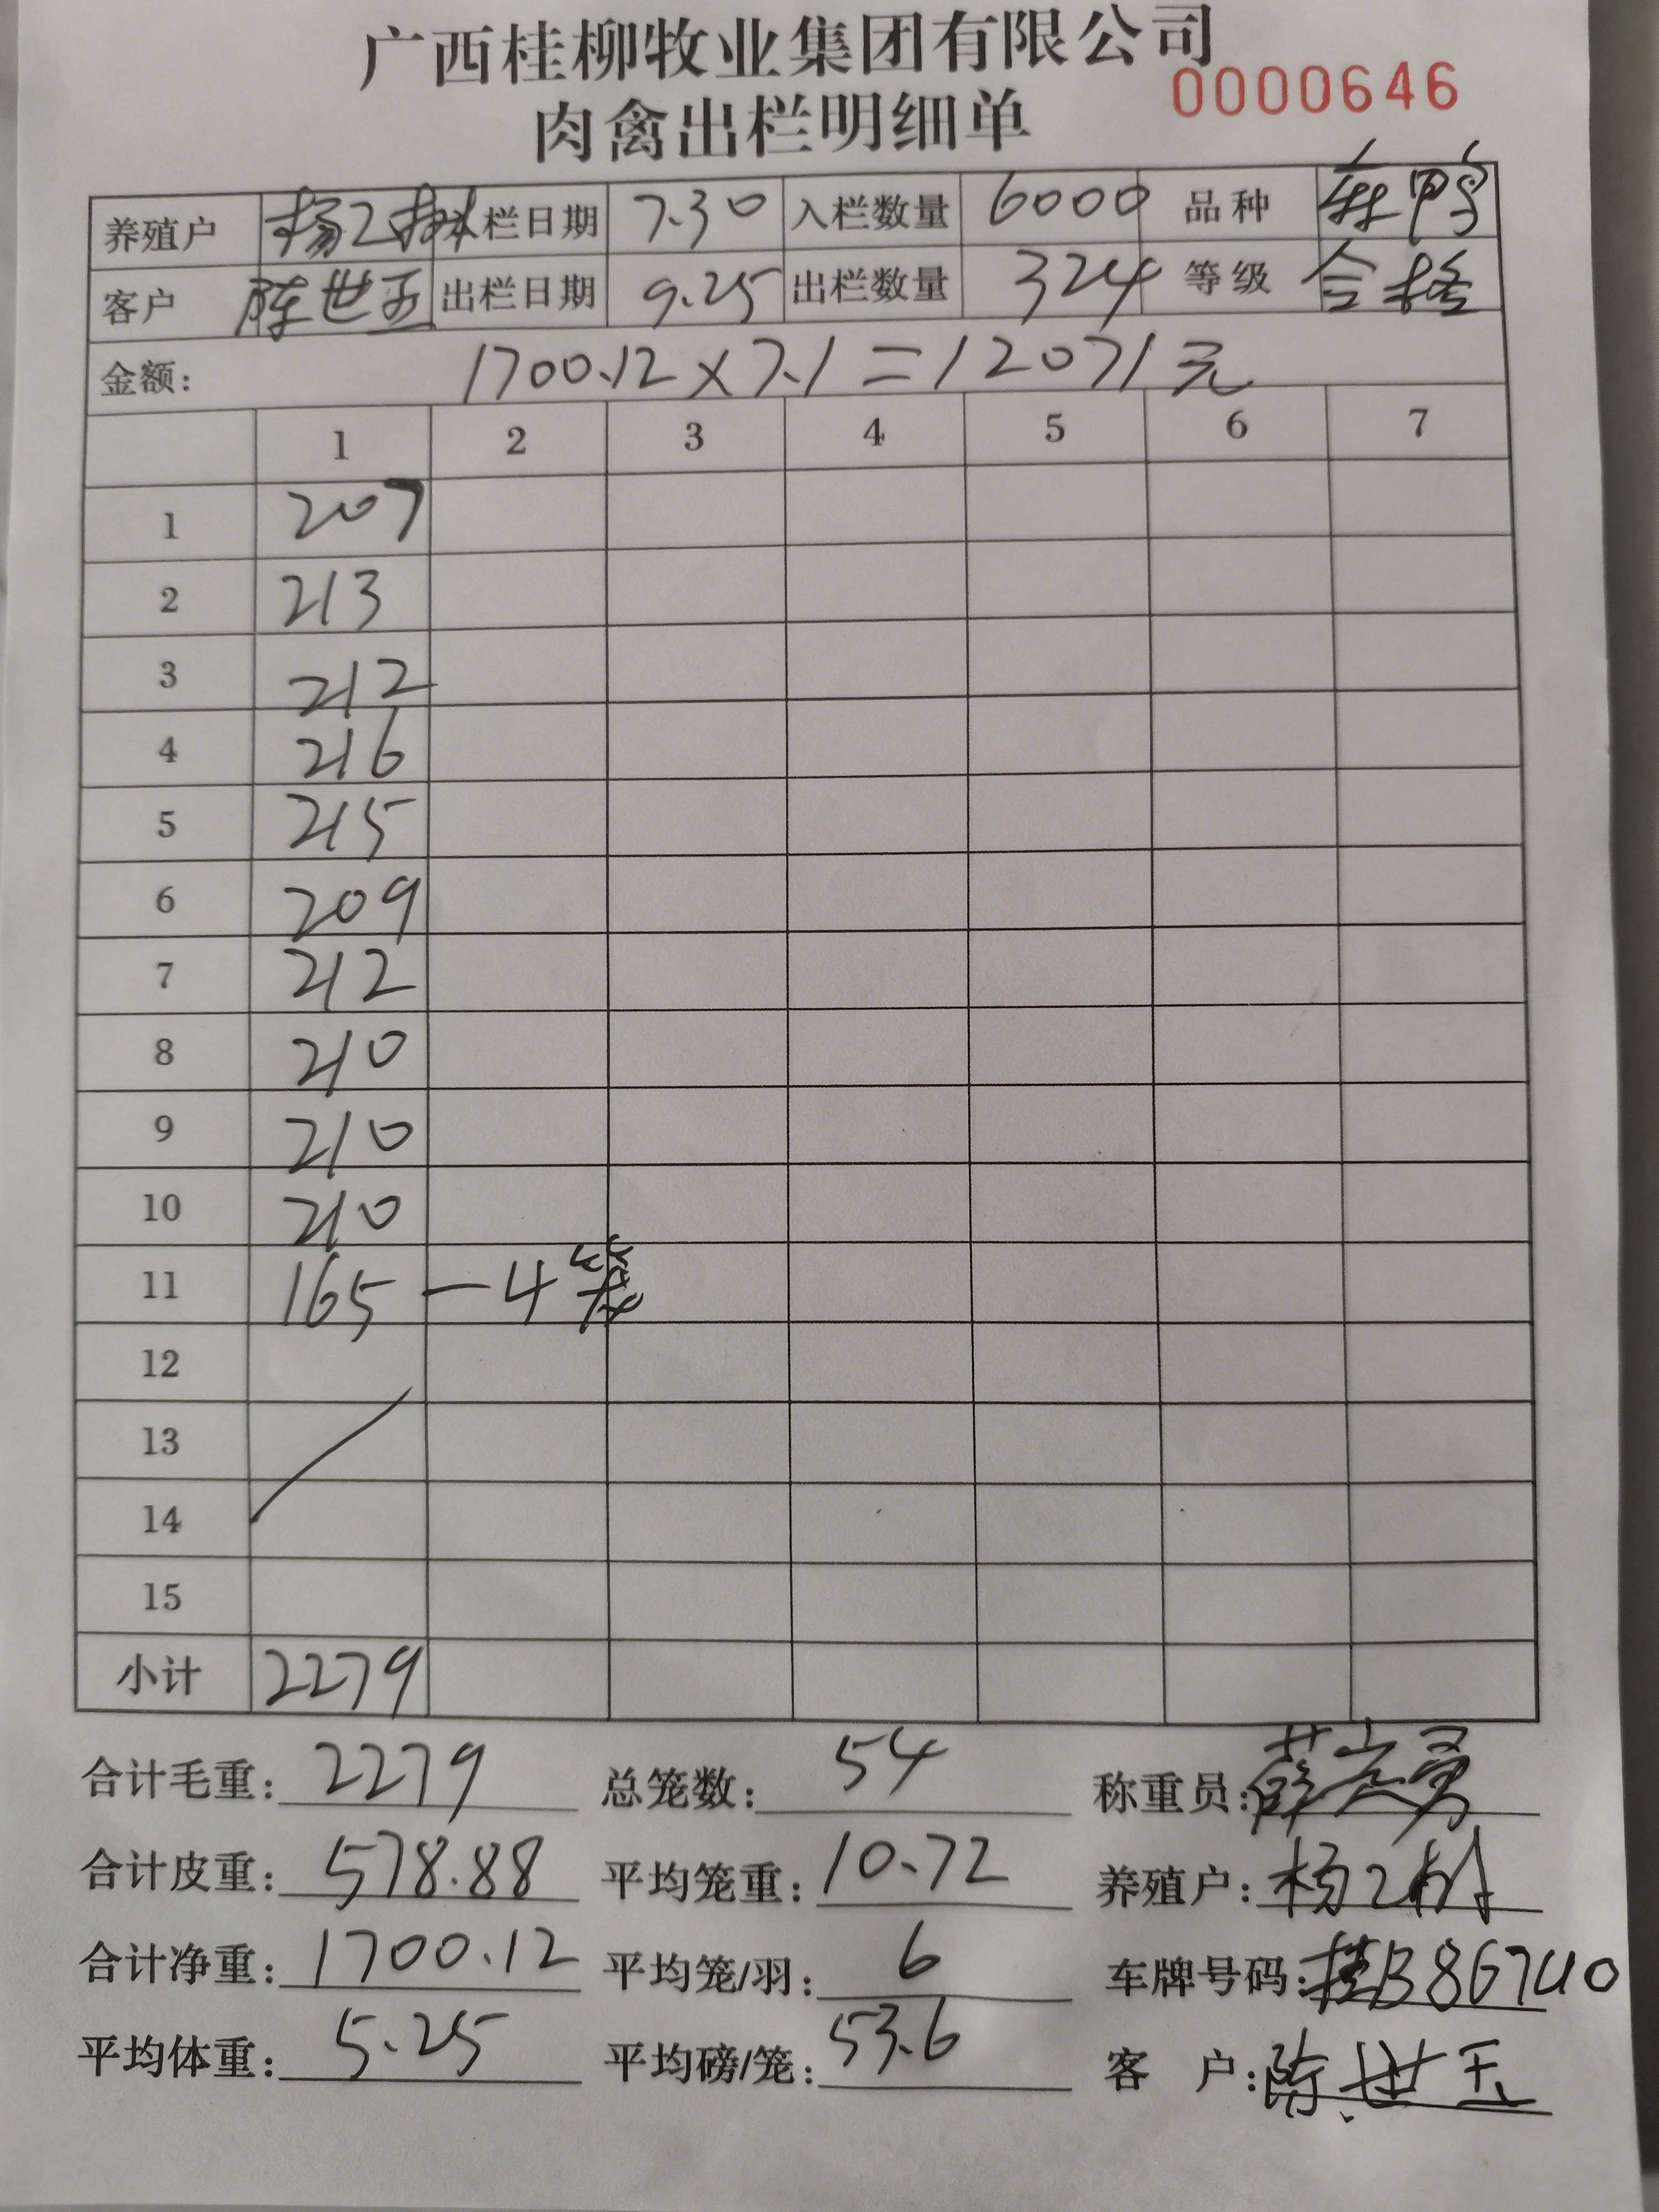 广西桂柳牧业集团有限公司
肉禽出栏明细单 0000646
养殖户 杨乙树 入栏日期 7.30 入栏数量 6000 品种 麻鸭
客户 陈世玉 出栏日期 9.25 出栏数量 324 等级 合格
金额: 1700.12×7.1=12071元
1 2 3 4 5 6 7
1 207
2 213
3 212
4 216
5 215
6 209
7 212
8 210
9 210
10 210
11 165-4笼
12
13
14
15
小计 2279
合计毛重: 2279 总笼数: 54 称重员:
合计皮重: 578.88 平均笼重: 10.72 养殖户: 杨乙树
合计净重: 1700.12 平均笼/羽: 6 车牌号码: 桂B867U0
平均体重: 5.25 平均磅/笼: 53.6 客户: 陈世玉